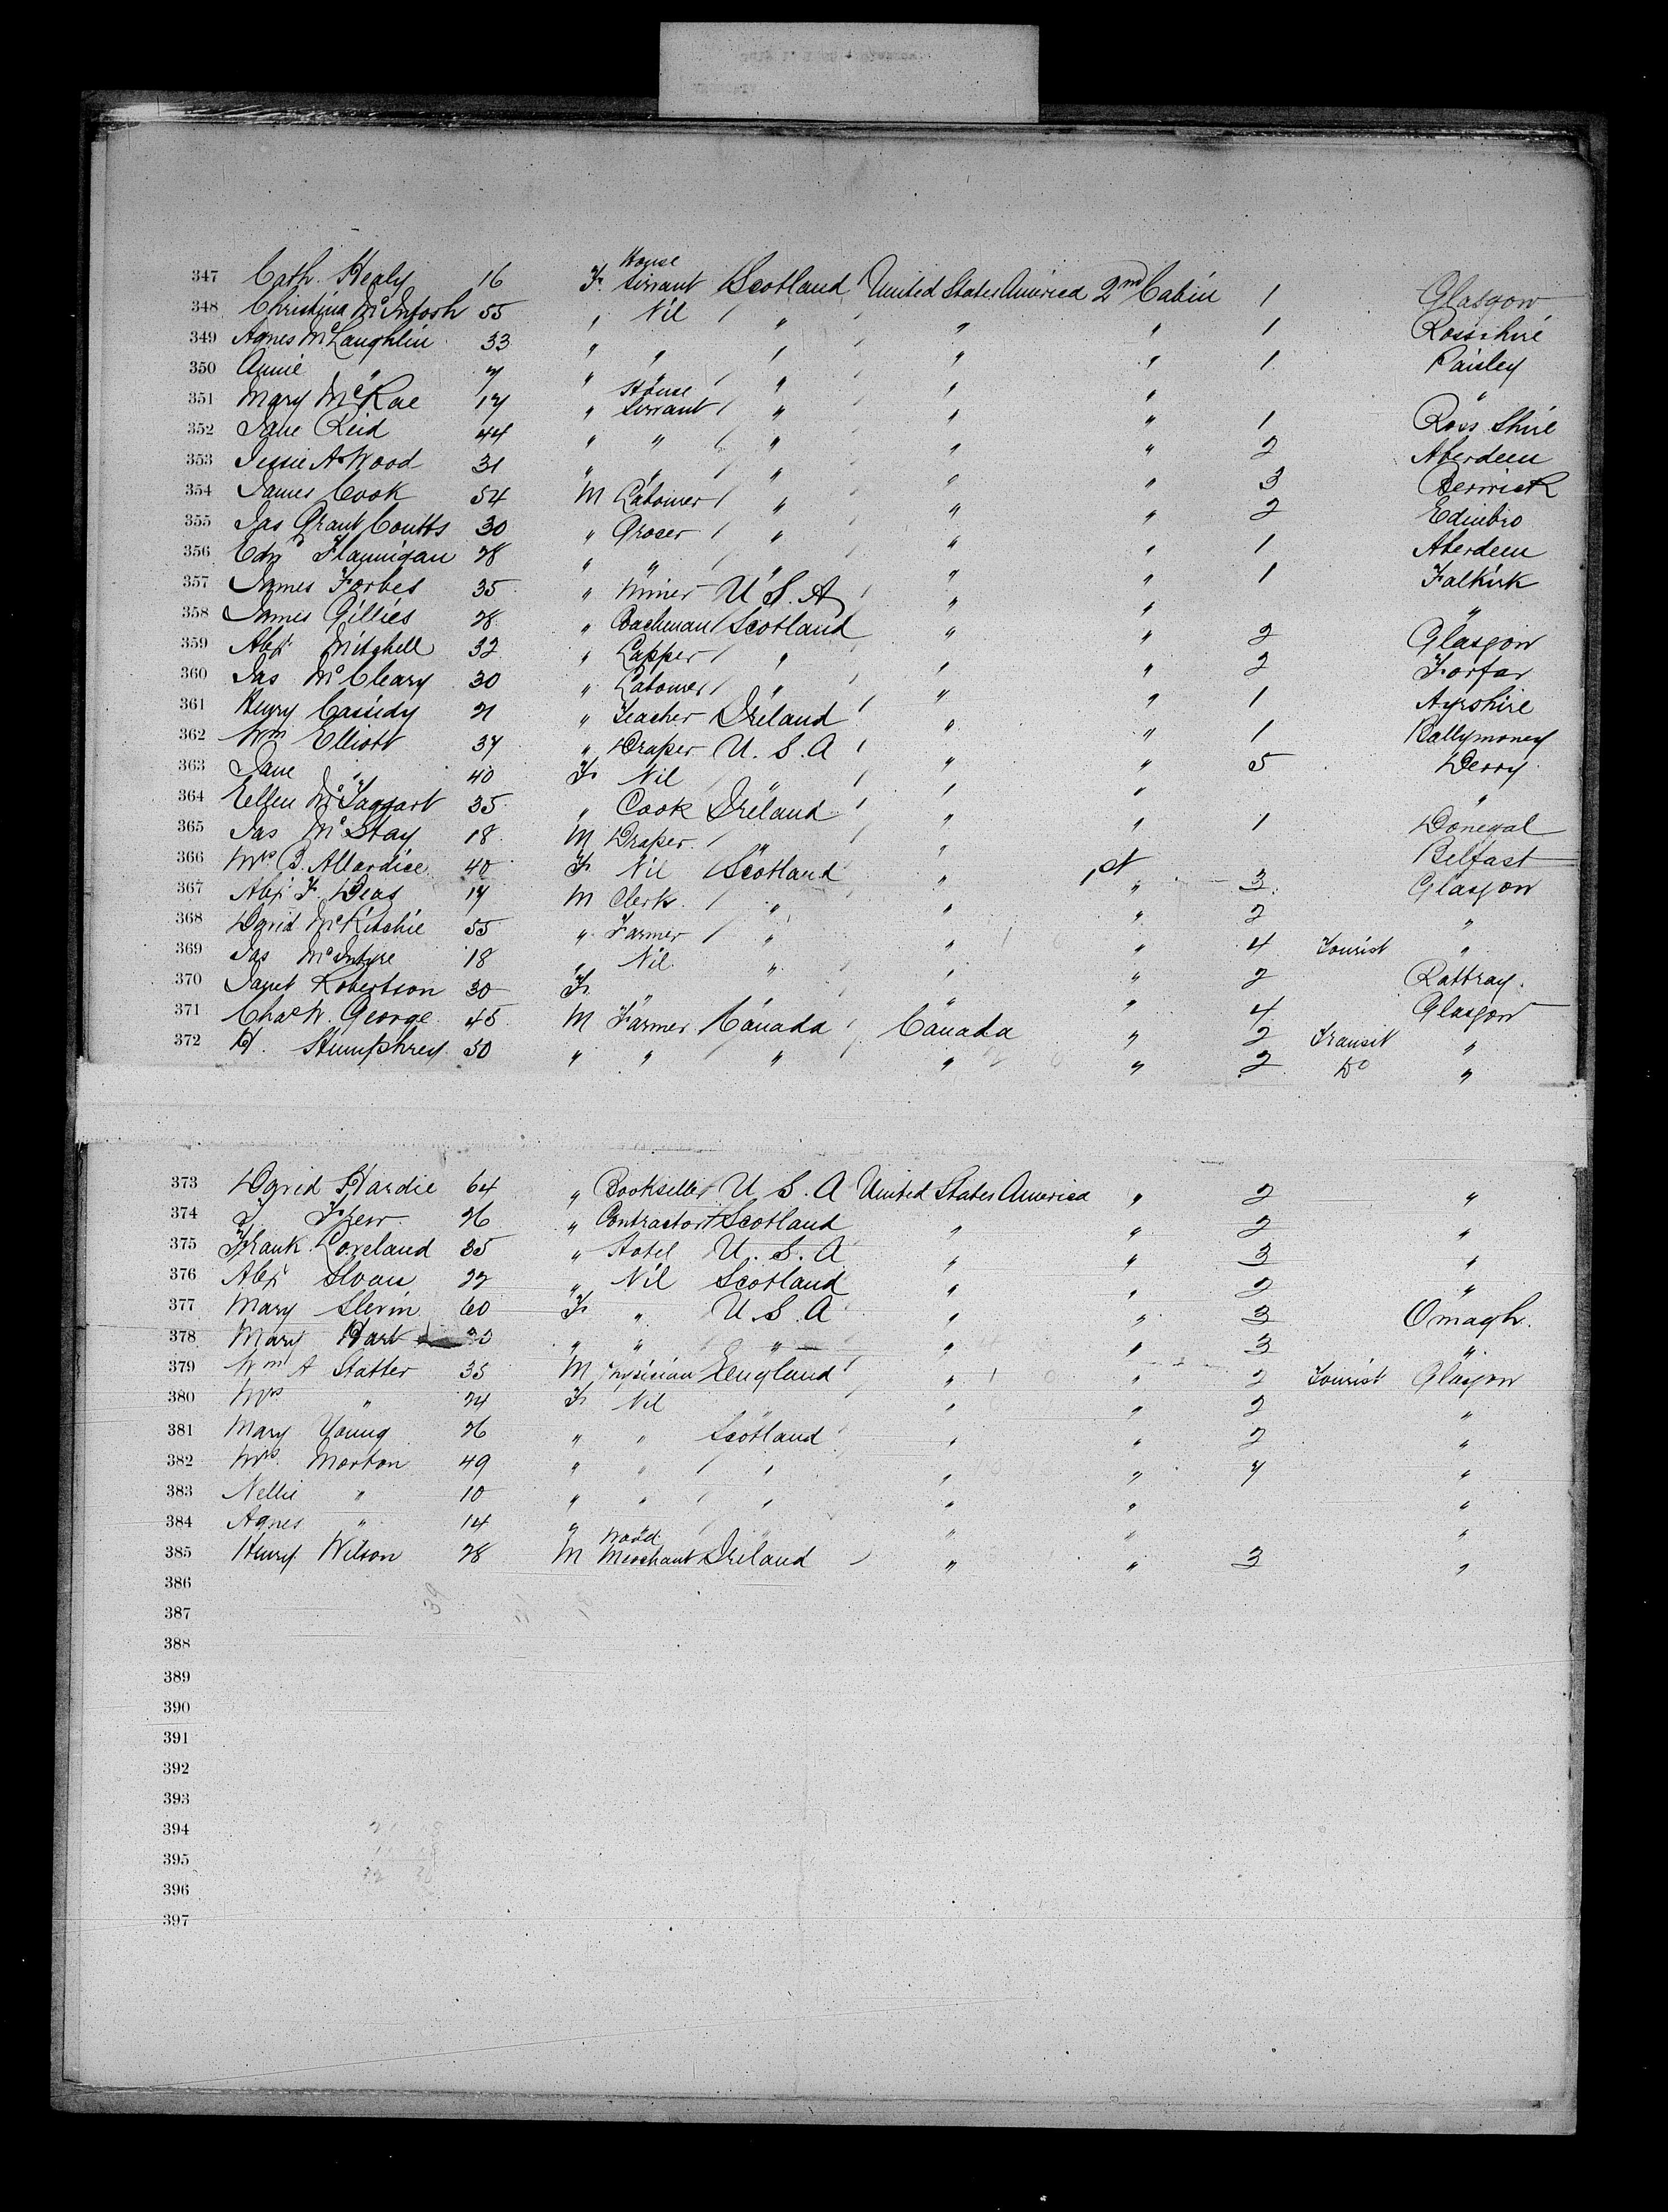 347 Cath. Healy 16 F. House Servant Scotland United States America 2nd Cabin 1 Glasgow
348 Christina McIntosh 55 " Nil " " " 1 Rosshire
349 Agnes McLaughlin 33 " " " " " 1 Paisley
350 Annie " 7 " " " " " "
351 Mary McRae 17 " House Servant " " " 1 Ross Shire
352 Jane Reid 44 " " " " " 2 Aberdeen
353 Jessie A Wood 31 " " " " " 3 Berwick
354 James Cook 54 M Labourer " " " 2 Edinbro
355 Jas Grant Coutts 30 " Groser " " " 1 Aberdeen
356 Edwd Flannigan 28 " " " " " 1 Falkirk
357 James Forbes 35 " Miner U.S.A " " "
358 James Gillies 28 " Coachman Scotland " " 2 Glasgow
359 Alexr Mitchell 32 " Lapper " " " 2 Forfar
360 Jas McCleary 30 " Labourer " " " 1 Ayrshire
361 Henry Cassidy 21 " Teacher Ireland " " 1 Ballymoney
362 Wm Elliott 37 " Draper U.S.A " " 5 Derry
363 Jane " 40 F Nil " " " "
364 Ellen McTaggart 35 " Cook Ireland " " 1 Donegal
365 Jas McStay 18 M Draper " " Belfast
366 Mrs B. Allardice 40 F Nil Scotland " 1st 3 Glasgow
367 Alexr F. Deas 17 M Clerk " " " 2 "
368 David McRitchie 55 " Farmer " " " 4 Tourist "
369 Jas McIntyre 18 " Nil " " " 2 Rattray.
370 Janet Robertson 30 F " " " " 4 Glasgow
371 Chas W. George 45 M Farmer Canada Canada " 2 Transit "
372 H. Humphrey 50 " " " " " 2 Do "
373 David Hardie 64 " Bookseller U.S.A United States America " 2 "
374 Frew 26 " Contractor Scotland " " 2 "
375 Frank Loveland 35 " Hotel U.S.A " " 3 "
376 Alexr Sloan 22 " Nil Scotland " " 2 "
377 Mary Slevin 60 F " U.S.A " " 3 Omagh.
378 Mary Hart " " " " " 3 "
379 Wm A Statter 35 M Physician England " " 2 Tourist Glasgow
380 Mrs " 24 F Nil " " " 2 "
381 Mary Young 26 " " Scotland " " 2 "
382 Mrs. Morton 49 " " " " " 7 "
383 Nellie " 10 " " " " " "
384 Agnes " 14 " " " " " "
385 Henry Wilson 28 M Wood Merchant Ireland " " 3 "
386
387
388
389
390
391
392
393
394
395
396
397